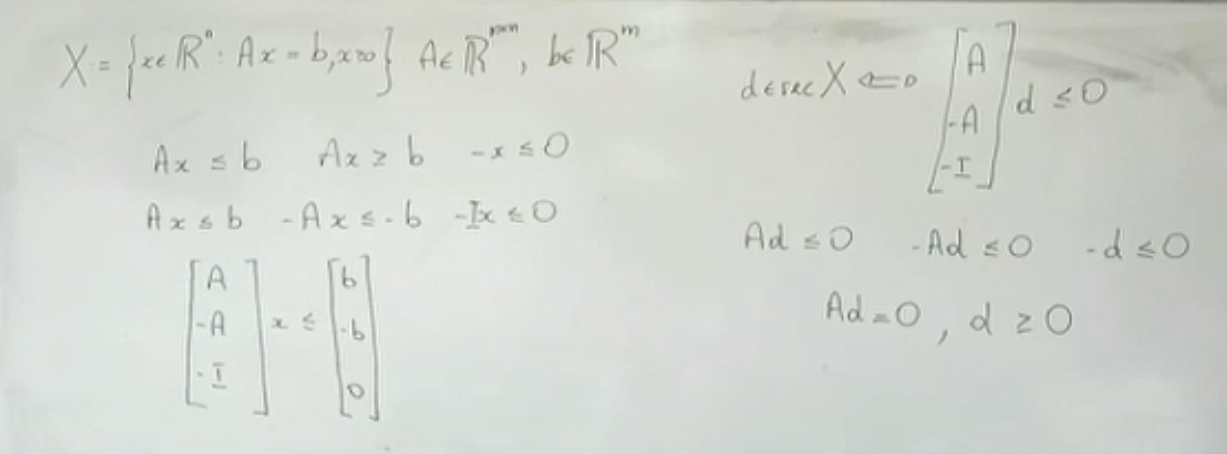 X = {x∈ℝⁿ : Ax = b, x≥0} A∈ℝᵐˣⁿ, b∈ℝᵐ
Ax ≤ b Ax ≥ b -x ≤ 0
Ax ≤ b -Ax ≤ -b -Ix ≤ 0
[A; -A; -I] x ≤ [b; -b; 0]
d ∈ rec X ⟺ [A; -A; -I] d ≤ 0
Ad ≤ 0 -Ad ≤ 0 -d ≤ 0
Ad = 0, d ≥ 0